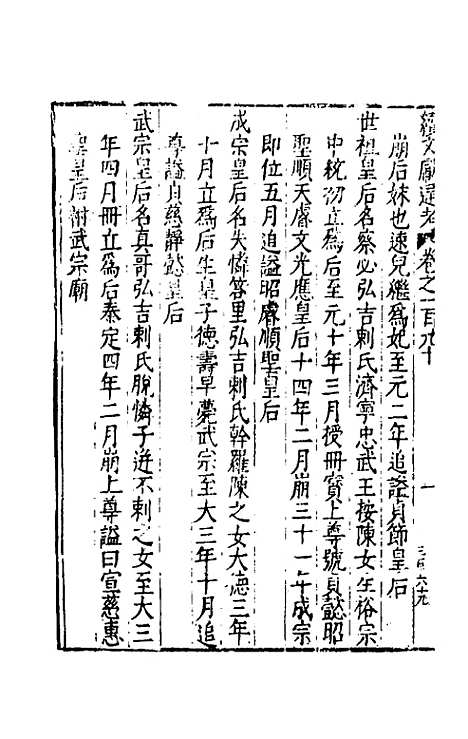 續文獻通考 卷之一百九十 一
崩后妹也速兒繼爲妃至元二年追謚貞節皇后
世祖皇后名察必弘吉剌氏濟寧忠武王按陳女生裕宗
中統初立爲后至元十年三月授冊寶上尊號貞懿昭
聖順天睿文光應皇后十四年二月崩三十一年成宗
即位五月追謚昭睿順聖皇后
成宗皇后名失憐答里弘吉剌氏幹羅陳之女大德三年
十月立爲后生皇子德壽早薨武宗至大三年十月追
尊謚貞慈靜懿皇后
武宗皇后名真哥弘吉剌氏脫憐子迸不剌之女至大三
年四月冊立爲后泰定四年二月崩上尊謚曰宣慈惠
聖皇后祔武宗廟